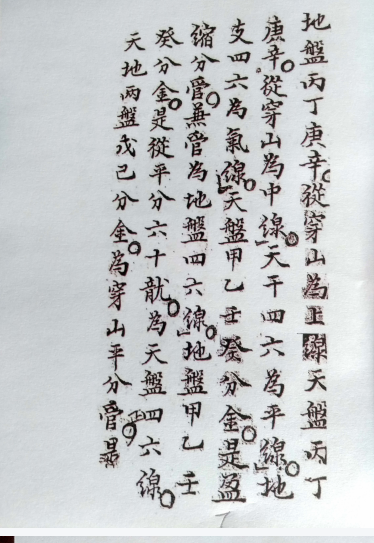 地盤丙丁庚辛。從穿山為正線天盤丙丁
庚辛。從穿山為中線。天干四六為平線。地
支四六為氣線。天盤甲乙壬癸分金。是盈
縮分管。兼管為地盤四六線。地盤甲乙壬
癸分金。是從平分六十龍。為天盤四六線。
天地兩盤戊己分金。為穿山平分管。是